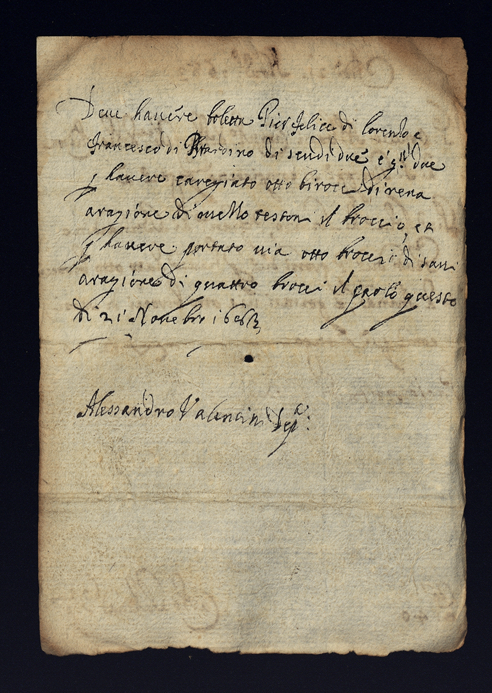 Deve havere boletta Pier felice di lorenzo e
francesco di di scudi due e g.li due
p havere caregiato otto birocci di rena
aragione di il broccio, et
p havere portato via otto brocci di sassi
aragione di quattro brocci il paolo questo
di 21 Novebre
Alessandro Valentini Dep.